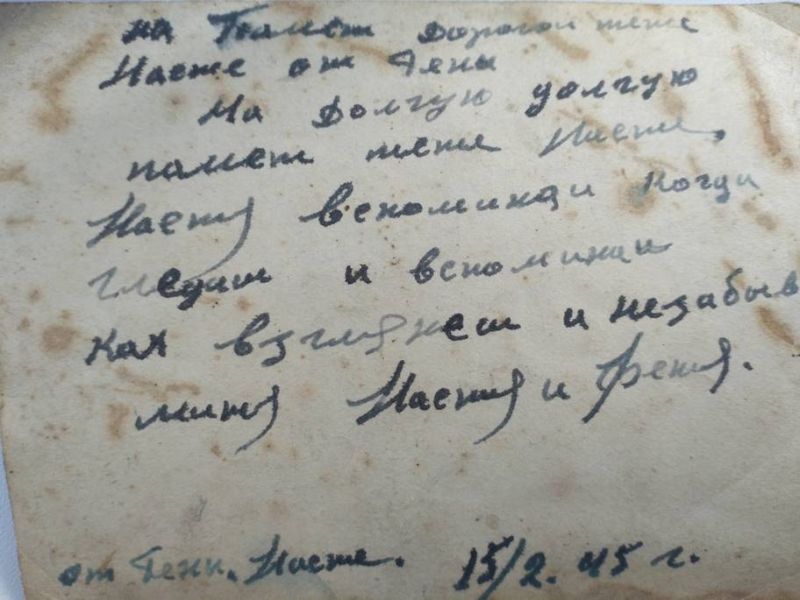 на Памет Дорогой тете
Насте от Гены
На Долгую долгую
памет тете Насте,
Настя вспоминай когда
гледиш и вспоминай
как взглянеш и незабыв
миня Настя и Феня.
от Гени. Насте. 15/2. 45 г.